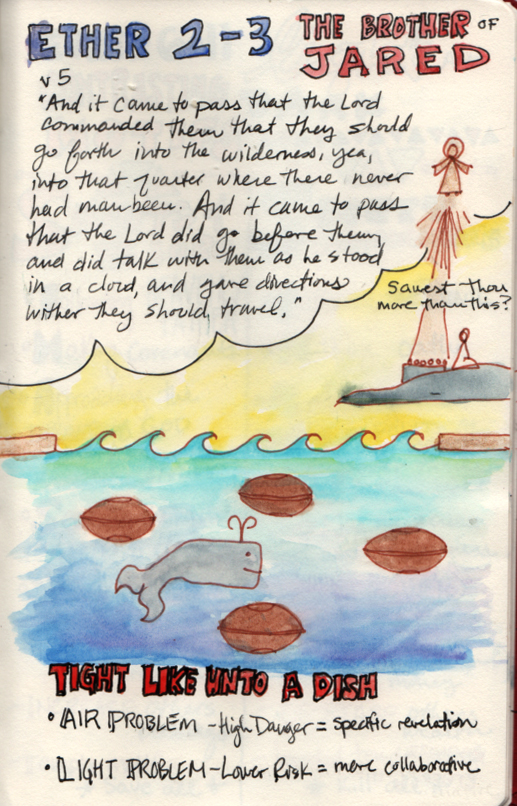 ETHER 2-3
THE BROTHER OF
JARED
v 5
"And it came to pass that the Lord
commanded them that they should
go forth into the wilderness, yea,
into that quarter where there never
had man been. And it came to pass
that the Lord did go before them,
and did talk with them as he stood
in a cloud, and gave directions
wither they should travel."
Sawest thou
more than this?
TIGHT LIKE UNTO A DISH
• AIR PROBLEM - High Danger = specific revelation
• LIGHT PROBLEM - Lower Risk = more collaborative